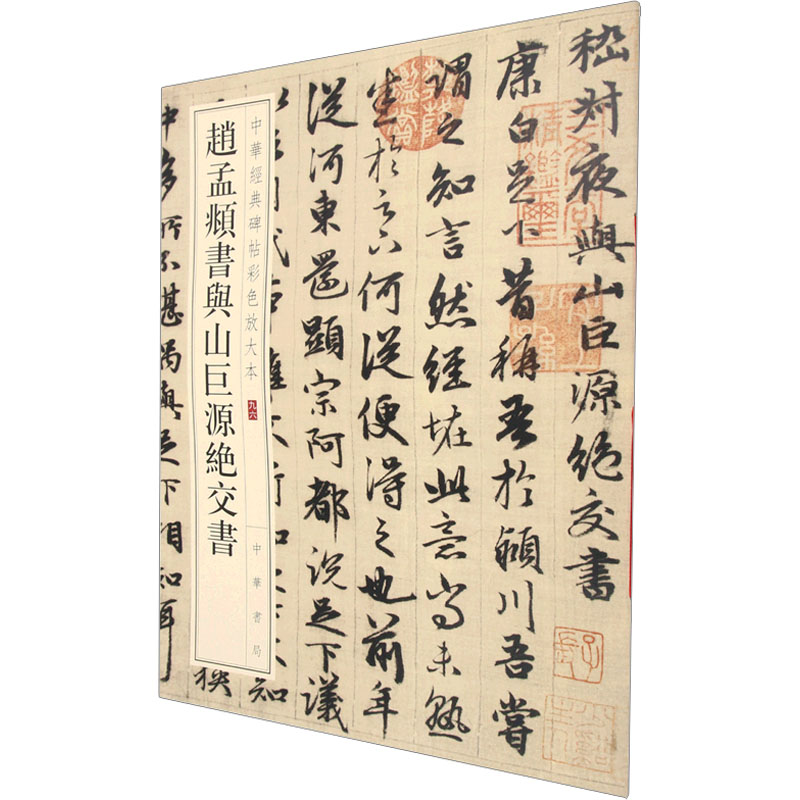 嵇叔夜與山巨源絕交書
康白足下昔稱吾於潁川吾嘗
謂之知言然經怪此意尚未熟
悉於足下何從便得之也前年
從河東還顯宗阿都說足下議
中華經典碑帖彩色放大本
九六
中華書局
趙孟頫書與山巨源絕交書
中多所不堪偶與足下相知耳